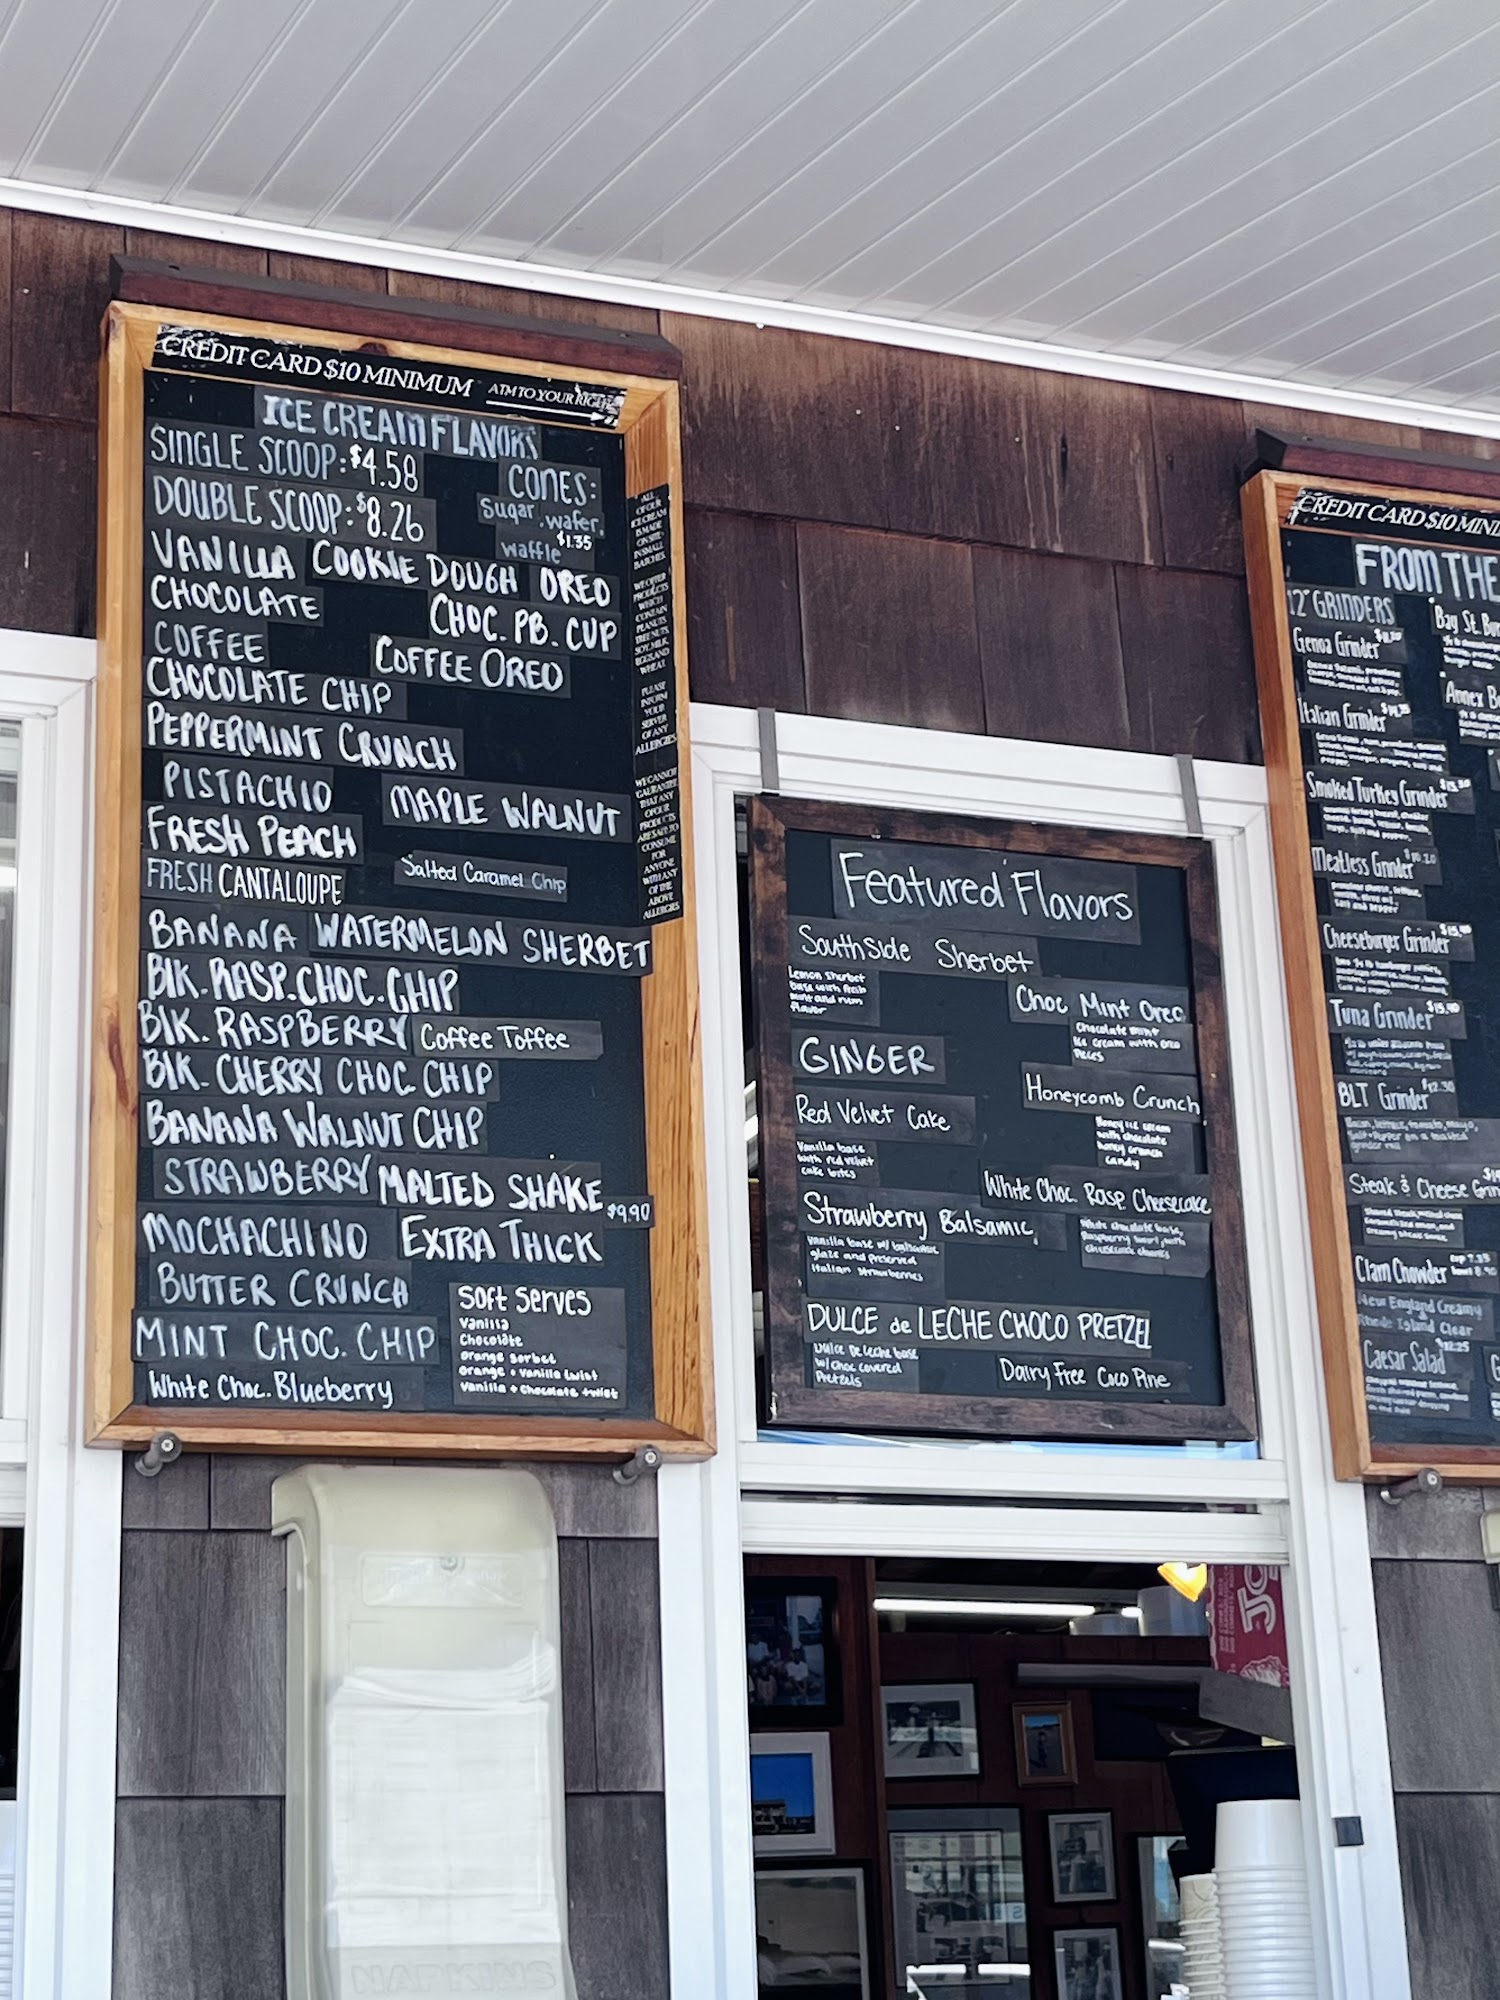 CREDIT CARD $10 MINIMUM ATM TO YOUR RIGHT
ICE CREAM FLAVORS
SINGLE SCOOP: $4.58
DOUBLE SCOOP: $8.26
CONES:
Sugar, wafer,
waffle $1.35
VANILLA COOKIE DOUGH OREO
CHOCOLATE CHOC. PB. CUP
COFFEE COFFEE OREO
CHOCOLATE CHIP
PEPPERMINT CRUNCH
PISTACHIO MAPLE WALNUT
FRESH PEACH
FRESH CANTALOUPE Salted Caramel Chip
BANANA WATERMELON SHERBET
BlK. RASP. CHOC. CHIP
BlK. RASPBERRY Coffee Toffee
BlK. CHERRY CHOC. CHIP
BANANA WALNUT CHIP
STRAWBERRY MALTED SHAKE $9.90
MOCHACHINO EXTRA THICK
BUTTER CRUNCH
MINT CHOC. CHIP
White Choc. Blueberry
Soft Serves
Vanilla
Chocolate
orange sorbet
orange + vanilla twist
vanilla + chocolate twist
ALL
OF OUR
ICE CREAM
IS MADE
ON SITE
IN SMALL
BATCHES.
WE OFFER
PRODUCTS
WHICH
CONTAIN
PEANUTS,
TREE NUTS,
SOY, MILK,
EGGS, AND
WHEAT.
PLEASE
INFORM
YOUR
SERVER
OF ANY
ALLERGIES.
WE CANNOT
GUARANTEE
THAT ANY
OF OUR
PRODUCTS
ARE SAFE TO
CONSUME
FOR
ANYONE
WITH ANY
OF THE
ABOVE
ALLERGIES.
Featured Flavors
Southside Sherbet
Lemon Sherbet
base with fresh
mint and rum
flavor
Choc Mint Oreo
Chocolate mint
ice cream with oreo
pieces
GINGER
Honeycomb Crunch
Honey ice cream
with chocolate
honey crunch
candy
Red Velvet Cake
Vanilla base
with red velvet
cake bites
White Choc. Rasp. Cheesecake
White chocolate base,
Raspberry swirl, with
cheesecake chunks
Strawberry Balsamic
Vanilla base w/ balsamic
glaze and preserved
Italian strawberries
DULCE de LECHE CHOCO PRETZEL
Dulce De Leche base
w/ choc covered
Pretzels
Dairy Free Coco Pine
CREDIT CARD $10 MINI
FROM THE
12" GRINDERS
Genoa Grinder
Italian Grinder
Smoked Turkey Grinder
Meatless Grinder $10.20
Cheeseburger Grinder
Tuna Grinder
BLT Grinder $12.30
Bacon, lettuce, tomato, Mayo,
Salt + Pepper on a toasted
grinder roll
Steak & Cheese Grin
Clam Chowder
New England Creamy
Rhode Island Clear
Caesar Salad
Bay St. Bu
Annex B
NAPKINS